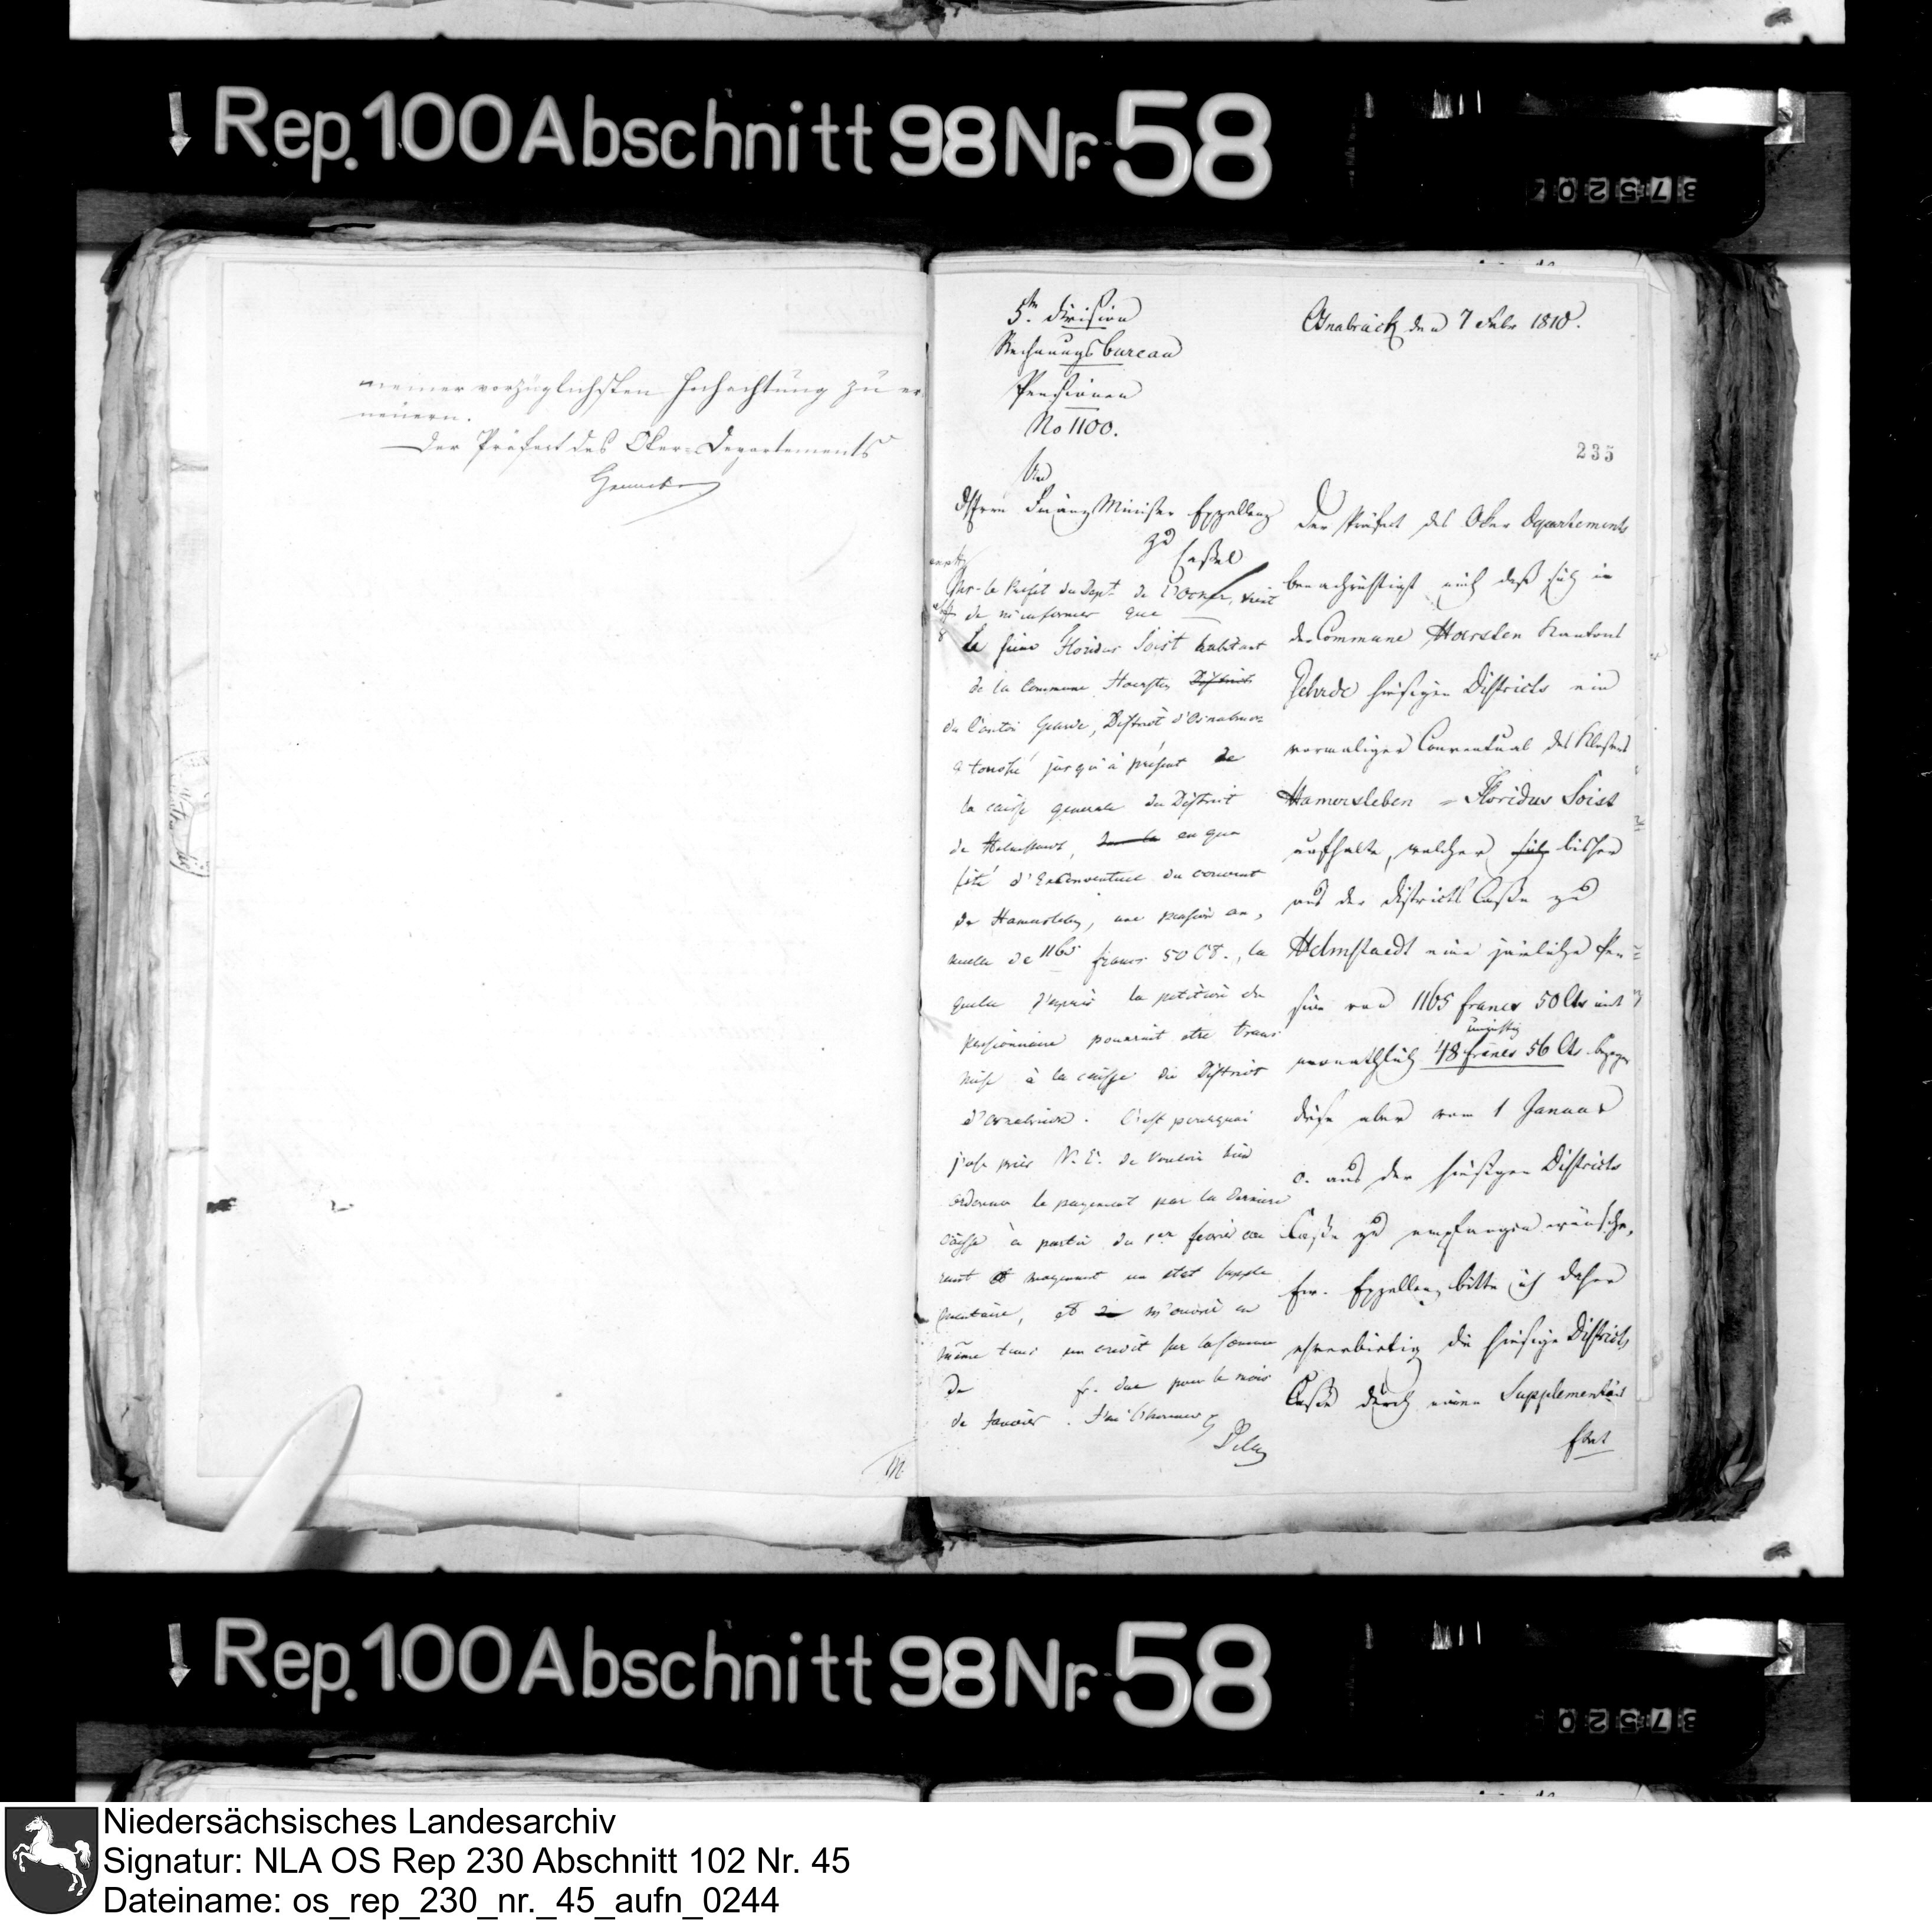 Rep. 100 Abschnitt 98 Nr. 58
37520
meiner vorzüglichsten Hochachtung zu er-
neuern.
Der Präfect des Oker-Departements
Henneberg
5te Division
Rechnungsbureau
Pensionen
No 1100.
An
des Herrn Finanz Minister Exzellenz
zu
Cassel
Mr. le Préfet du Dept. de l'Ocker, vient
de m'informer que
le sieur Floridus Soist habitant
de la Commune Haersten District
du Canton Gehrde, District d'Osnabruc
a touché jusqu'à présent de
la caisse generale du District
de Helmstaedt, de la en qua
lité d'Exconventuel du couvent
de Hamersleben, une pension an,
nuelle de 1165 francs 50 Ct., la
quelle d'après la petition du
pensionnaire pourrait etre trans
mise à la caisse du District
d'osnabruck. C'est pourquoi
j'ose prier V. E. de vouloir bien
ordonner le payement par la derniere
caisse à partir du 1er fevrier cou
rant et moyennant un etat supple
mentaire, et de m'ouvrir en
même tems un credit sur la somme
de fr. due pour le mois
de Janvier. J'ai l'honneur
M
Osnabrück den 7 Febr 1810.
235
Der Präfect des Oker Departements
benachrichtigt mich daß sich in
der Commune Haersten Kantons
Gehrde hiesigen Districts ein
vormaliger Conventual des Klosters
Hamersleben = Floridus Soist
aufhalte, welcher sich bisher
aus der Districts Casse zu
Helmstaedt eine jährliche Pen=
sion von 1165 francs 50 Cts mit
monathlich 48 francs 56 Cts bezogen
diese aber vom 1 Januar
c. aus der hiesigen Districts
Casse zu empfangen wünsche,
Ew. Exzellenz bitte ich daher
ehrerbietig die hiesige Districts
Casse durch einen Supplementair
Etat
Rep. 100 Abschnitt 98 Nr. 58
37520
Niedersächsisches Landesarchiv
Signatur: NLA OS Rep 230 Abschnitt 102 Nr. 45
Dateiname: os_rep_230_nr._45_aufn_0244